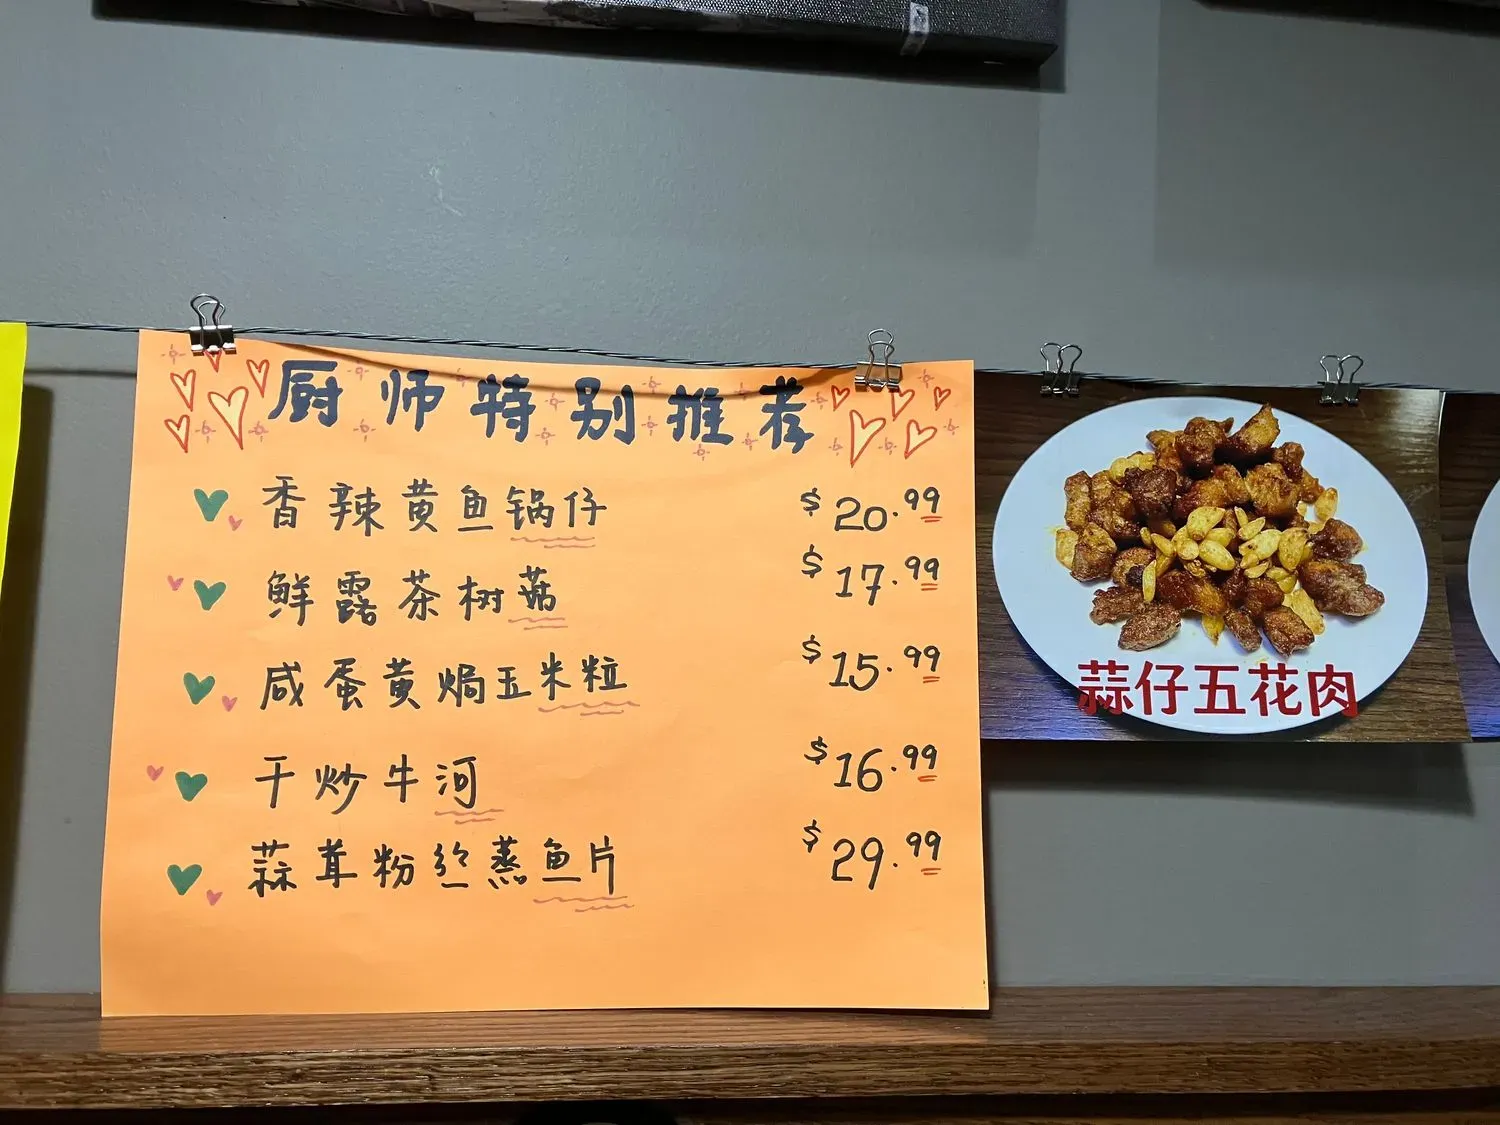 厨师特别推荐
香辣黄鱼锅仔 $20.99
鲜露茶树菇 $17.99
咸蛋黄焗玉米粒 $15.99
干炒牛河 $16.99
蒜茸粉丝蒸鱼片 $29.99
蒜仔五花肉